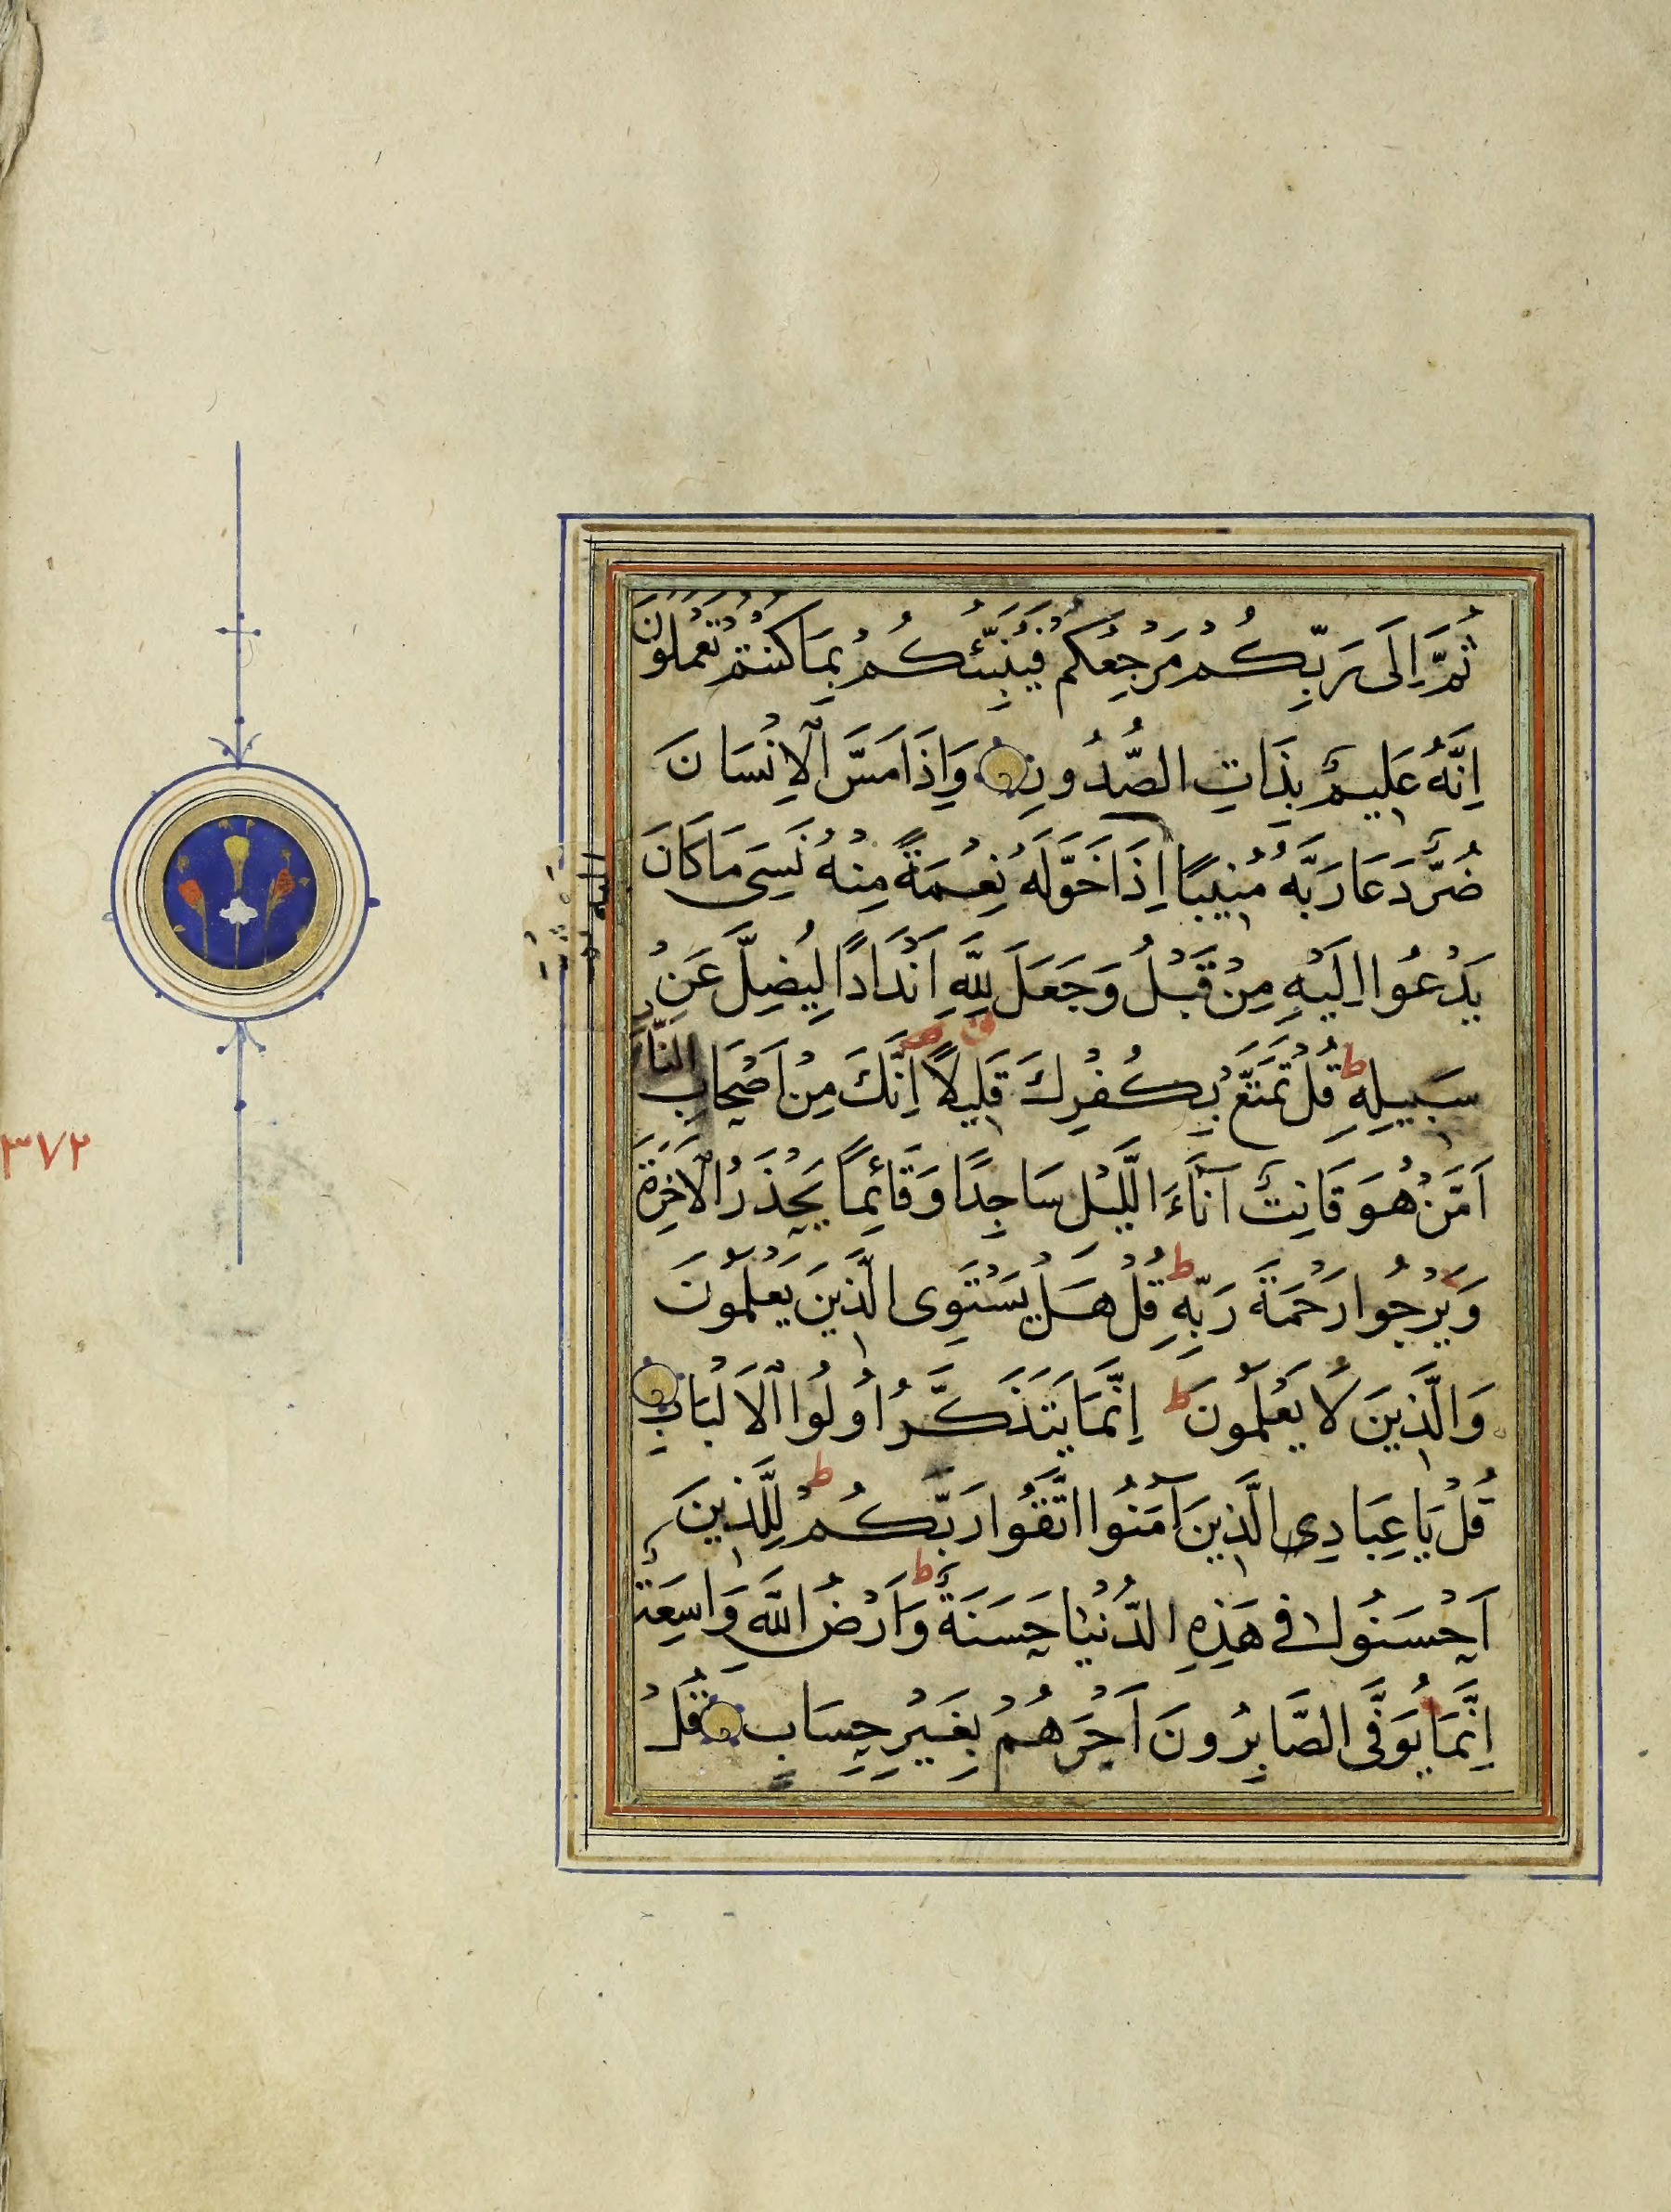 ثُمَّ اِلَى رَبِّكُمْ مَرْجِعُكُمْ فَيُنَبِّئُكُمْ بِمَا كُنْتُمْ تَعْمَلُونَ
اِنَّهُ عَلِيمٌ بِذَاتِ الصُّدُورِ وَاِذَا مَسَّ الْاِنْسَانَ
ضُرٌّ دَعَا رَبَّهُ مُنِيبًا اِذَا خَوَّلَهُ نِعْمَةً مِنْهُ نَسِىَ مَا كَانَ
يَدْعُوا اِلَيْهِ مِنْ قَبْلُ وَجَعَلَ لِلَّهِ اَنْدَادًا لِيُضِلَّ عَنْ
سَبِيلِهِ ط قُلْ تَمَتَّعْ بِكُفْرِكَ قَلِيلًا اِنَّكَ مِنْ اَصْحَابِ النَّارِ
اَمَّنْ هُوَ قَانِتٌ آنَاءَ الَّيْلِ سَاجِدًا وَقَائِمًا يَحْذَرُ الْاَخِرَةَ
وَيَرْجُوا رَحْمَةَ رَبِّهِ ط قُلْ هَلْ يَسْتَوِى الَّذِينَ يَعْلَمُونَ
وَالَّذِينَ لَا يَعْلَمُونَ ط اِنَّمَا يَتَذَكَّرُ اُولُوا الْاَلْبَابِ
قُلْ يَا عِبَادِى الَّذِينَ آمَنُوا اتَّقُوا رَبَّكُمْ ط لِلَّذِينَ
اَحْسَنُوا فِى هَذِهِ الدُّنْيَا حَسَنَةٌ ط وَاَرْضُ اللَّهِ وَاسِعَةٌ
اِنَّمَا يُوَفَّى الصَّابِرُونَ اَجْرَهُمْ بِغَيْرِ حِسَابٍ قُلْ
٣٧٢